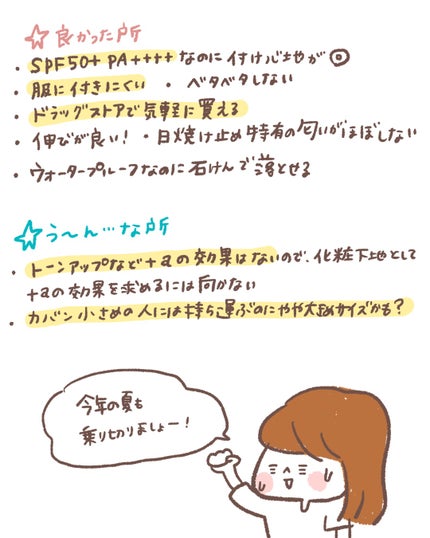 ☆良かった所
・SPF50+ PA++++なのに付け心地が◎
・服に付きにくい ・ベタベタしない
・ドラッグストアで気軽に買える
・伸びが良い！・日焼け止め特有の匂いがほぼしない
・ウォータープルーフなのに石けんで落とせる
☆う〜ん…な所
・トーンアップなど+aの効果はないので、化粧下地として
+aの効果を求めるには向かない
・カバン小さめの人には持ち運ぶのにやや大きめサイズかも？
今年の夏も
乗り切りましょー！